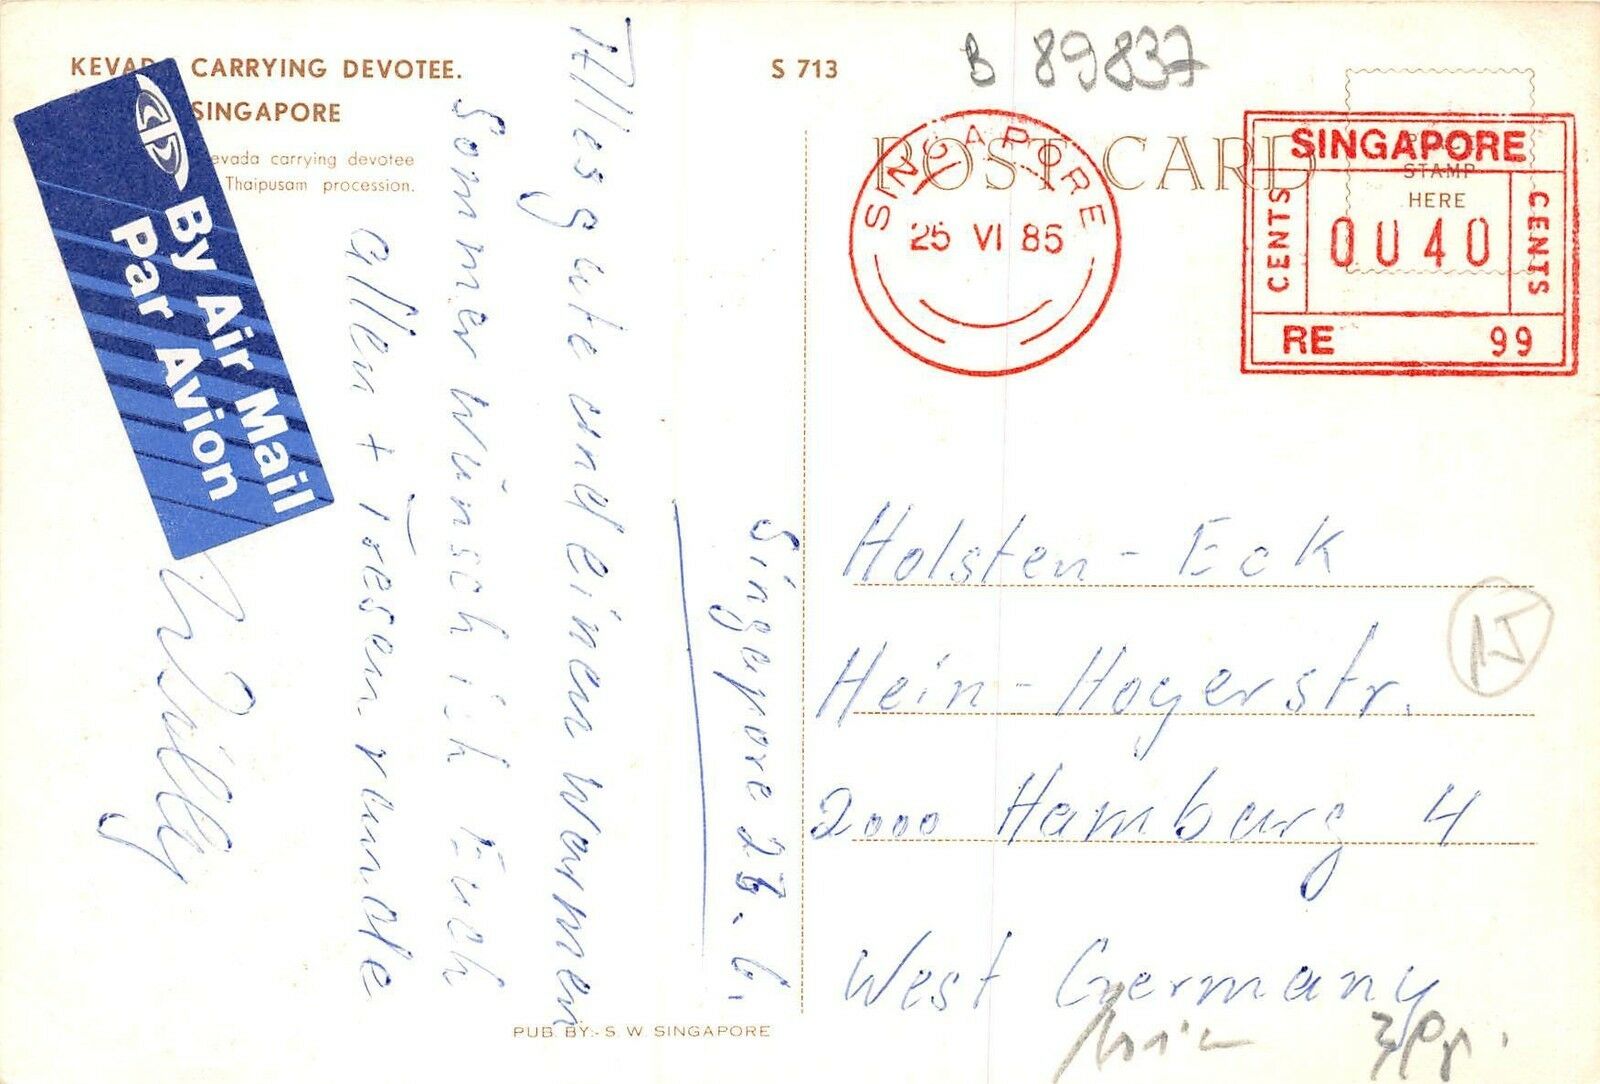 KEVADA CARRYING DEVOTEE.
SINGAPORE
evada carrying devotee
Thaipusam procession.
By Air Mail
Par Avion
S 713
B 89837
POST CARD
STAMP
HERE
SINGAPORE
25 VI 85
SINGAPORE
CENTS
0040
CENTS
RE 99
Singapore 26.6.
Alles gute und einen warmen
Sommer wünsch ich Euch
allen + Tresenrunde
Willy
Holsten-Eck
Hein-Hoyerstr.
2000 Hamburg 4
West Germany
PUB. BY:- S. W. SINGAPORE